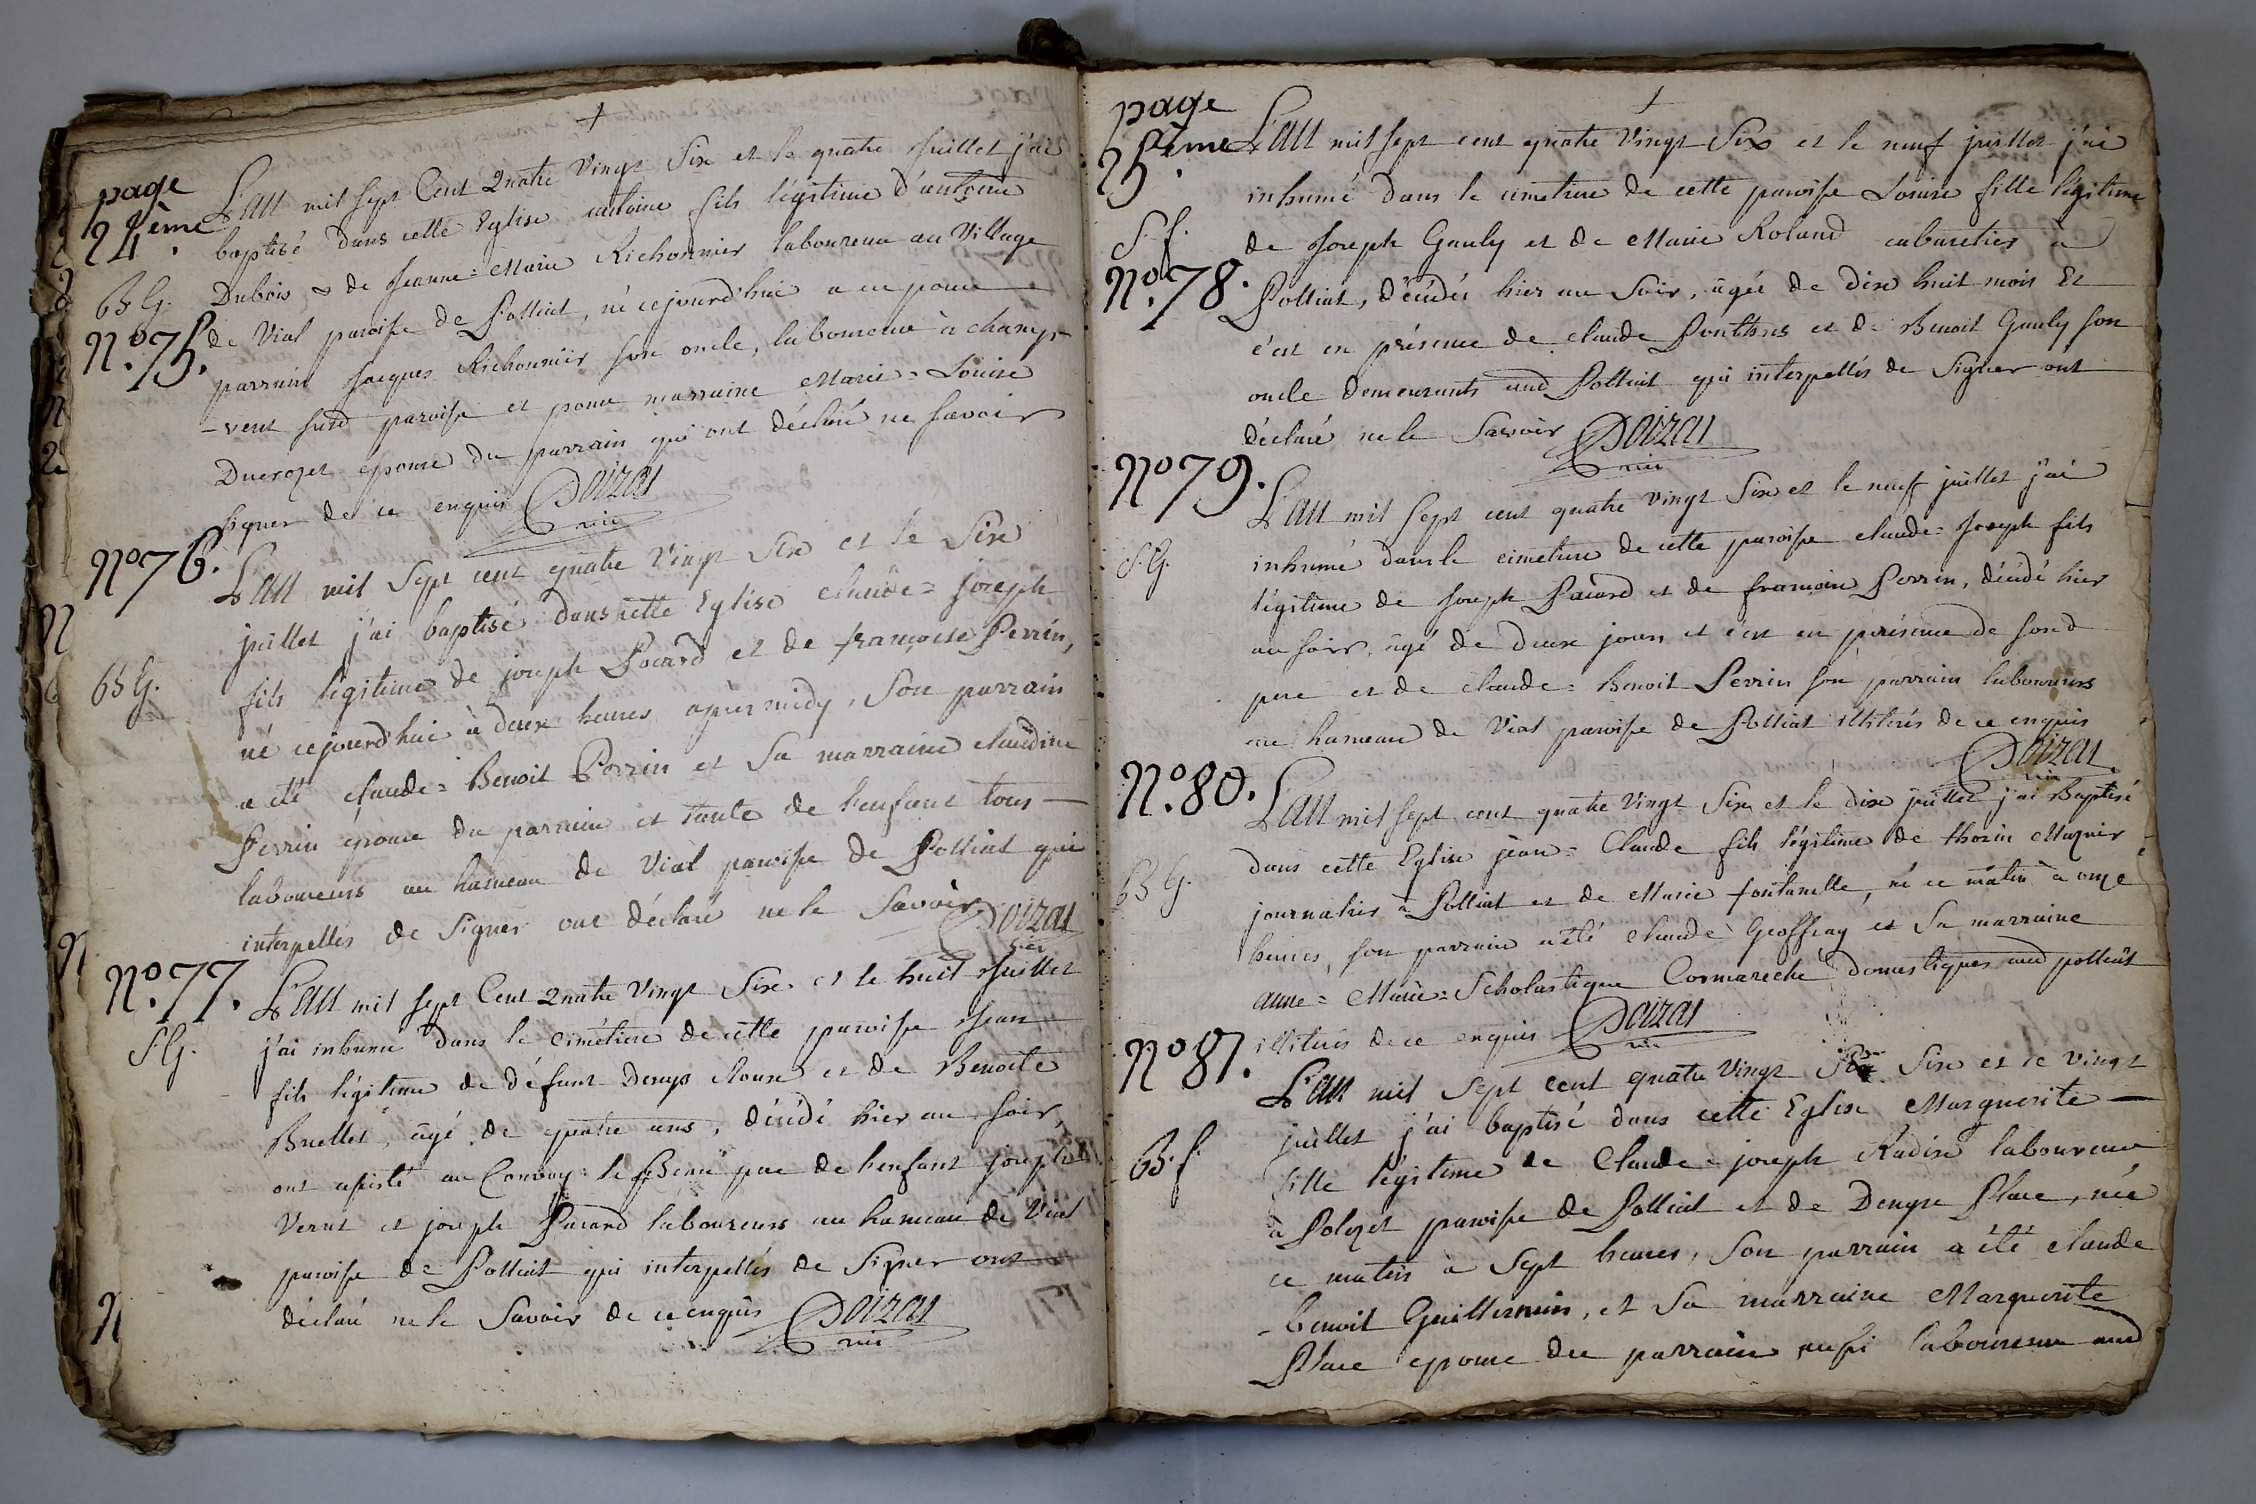 page
24ème.
L'an mil sept Cent Quatre Vingt Six et le quatre Juillet j'ai
baptisé dans cette Eglise antoine fils légitime d'antoine
B G. Dubois & de Jeanne=Marie Richonnier laboureur au Village
N.º 75. de Vial paroisse de Polliat, né cejourd'hui a eu pour
parrain Jacques Richonnier son oncle, laboureur à champ-
-vent susd paroisse et pour marraine Marie=Louise
Ducrozet epouse du parrain qui ont déclaré ne savoir
signer de ce enquis Doizat
vic
Nº 76. L'an mil Sept cent quatre Vingt Six et le Six
juillet j'ai baptisé dans cette Eglise claude=joseph
B G. fils légitime de joseph Pocard et de françoise Perrin,
né cejourd'hui à deux heures après midy, Son parrain
a été claude=Benoit Perrin et Sa marraine claudine
Perrin epouse du parrain et tante de l'enfant tous
laboureurs au hameau de Vial paroisse de Polliat qui
interpellés de Signer ont déclaré ne le Savoir Doizat
vic
N.º 77. L'an mil sept Cent Quatre Vingt Six et le huit Juillet
S G. j'ai inhumé dans le cimétiere de cette paroisse Jean
fils légitime de défunt Denys et de Benoite
Buellet, âgé de quatre ans, décédé hier au soir,
ont assisté au Convoy le Beau pere de l'enfant joseph
Verut et joseph Pacard laboureurs au hameau de Vial
paroisse de Polliat qui interpellés de Signer ont
déclaré ne le Savoir de ce enquis Doizat
vic
page
25ème.
L'an mil sept cent quatre Vingt Six et le neuf juillet j'ai
inhumé dans le cimetiere de cette paroisse Louise fille légitime
S f. de Joseph Gauly et de Marie Roland cabaretier à
Nº 78. Polliat, décédée hier au Soir, âgée de dix huit mois Et
c'est en présence de claude Ponthus et de Benoit Gauly son
oncle demeurants aud Polliat qui interpellés de Signer ont
déclaré ne le Savoir Doizat
vic
Nº 79. L'an mil Sept cent quatre vingt Six et le neuf juillet j'ai
S. G. inhumé dans le cimetiere de cette paroisse claude=Joseph fils
légitime de Joseph Pacard et de françoise Perrin, décédé hier
au soir, âgé de deux jours et c'est en présence de sond
pere et de claude=Benoit Perrin son parrain laboureurs
au hameau de Vial paroisse de Polliat illiterés de ce enquis
Doizat
vic
N.º 80. L'an mil sept cent quatre Vingt Six et le dix juillet j'ai Baptisé
B G. dans cette Eglise jean=Claude fils légitime de thozin
journalier à Polliat et de Marie fontanelle, né ce matin à onze
heures, son parrain a été claude Geoffray et Sa marraine
anne=Marie=Scholastique Cormareche domestiques aud polliat
illiterés de ce enquis Doizat
vic
Nº 81. L'an mil Sept cent quatre Vingt Six et le vingt
juillet j'ai baptisé dans cette Eglise Marguerite
B. f. fille légitime de Claude=joseph Radix laboureur
à Polezet paroisse de Polliat et de Denyse Place, née
ce matin à Sept heures, Son parrain a été claude
-benoit Guillermin, et Sa marraine Marguerite
Place epouse du parrain aussi laboureur aud